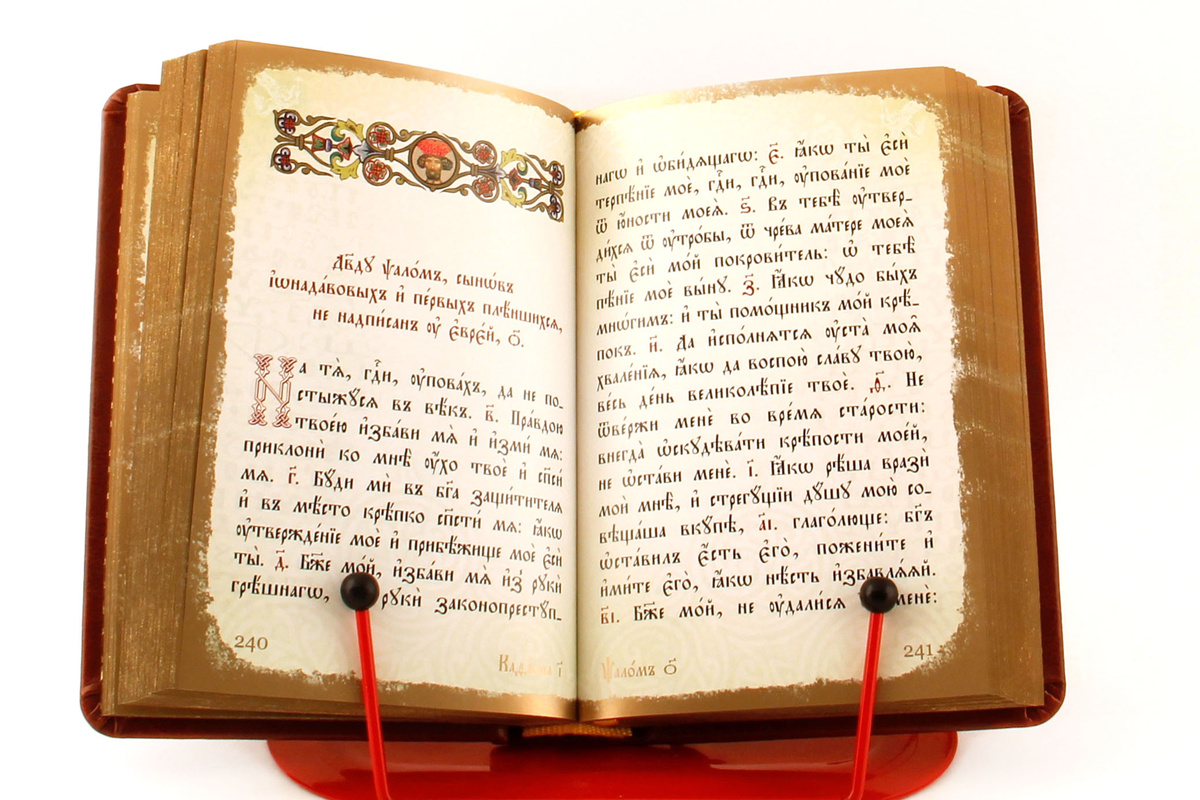 Дв҃ду ѱало́мъ, сынѡ́въ
і҆ѡнада́вовыхъ и҆ пе́рвыхъ плѣ́ншихсѧ,
не надпи́санъ ᲂу҆ є҆вре́й, о҃.
На тѧ̀, гдⷭ҇и, ᲂу҆пова́хъ, да не по_
стыжꙋ́сѧ въ вѣ́къ. в҃. Пра́вдою
твое́ю и҆зба́ви мѧ̀ и҆ и҆зми́ мѧ:
приклонѝ ко мнѣ̀ ᲂу҆́хо твоѐ и҆ сп҃си́
мѧ. г҃. Бꙋ́ди мѝ въ бг҃а защи́тителѧ
и҆ въ мѣ́сто крѣ́пко сп҃сти́ мѧ: ꙗ҆́кѡ
ᲂу҆твержде́нїе моѐ и҆ прибѣ́жище моѐ є҆сѝ
ты̀. д҃. Бж҃е мо́й, и҆зба́ви мѧ̀ и҆з̾ рꙋкѝ
грѣ́шнагѡ, рꙋкѝ законопрестꙋ́п_
240
Каѳі́сма і҃
нагѡ и҆ ѡ҆би́дѧщагѡ: є҃. ꙗ҆́кѡ ты̀ є҆сѝ
терпѣ́нїе моѐ, гдⷭ҇и, гдⷭ҇и, ᲂу҆пова́нїе моѐ
ѿ ю҆́ности моеѧ̀. ѕ҃. Въ тебѣ̀ ᲂу҆твер_
ди́хсѧ ѿ ᲂу҆тро́бы, ѿ чре́ва ма́тере моеѧ̀
ты̀ є҆сѝ мо́й покрови́тель: ѡ҆ тебѣ̀
пѣ́нїе моѐ вы́нꙋ. з҃. Ꙗ҆́кѡ чꙋ́до бы́хъ
мнѡ́гимъ: и҆ ты̀ помо́щникъ мо́й крѣ́_
покъ. и҃. Да и҆спо́лнѧтсѧ ᲂу҆ста̀ моѧ̑
хвале́нїѧ, ꙗ҆́кѡ да воспою̀ сла́вꙋ твою̀,
ве́сь де́нь великолѣ́пїе твоѐ. ѳ҃. Не
ѿве́ржи менѐ во вре́мѧ ста́рости:
внегда̀ ѡ҆скꙋдѣва́ти крѣ́пости мое́й,
не ѡ҆ста́ви менѐ. і҃. Ꙗ҆́кѡ рѣ́ша вразѝ
моѝ мнѣ̀, и҆ стрегꙋ́щїи дꙋ́шꙋ мою̀ со_
вѣща́ша вкꙋ́пѣ, а҃і. глаго́люще: бг҃ъ
ѡ҆ста́вилъ є҆́сть є҆го̀, пожени́те и҆
и҆ми́те є҆го̀, ꙗ҆́кѡ нѣ́сть и҆збавлѧ́ѧй.
в҃і. Бж҃е мо́й, не ᲂу҆дали́сѧ менѐ:
Ѱало́мъ о҃
241